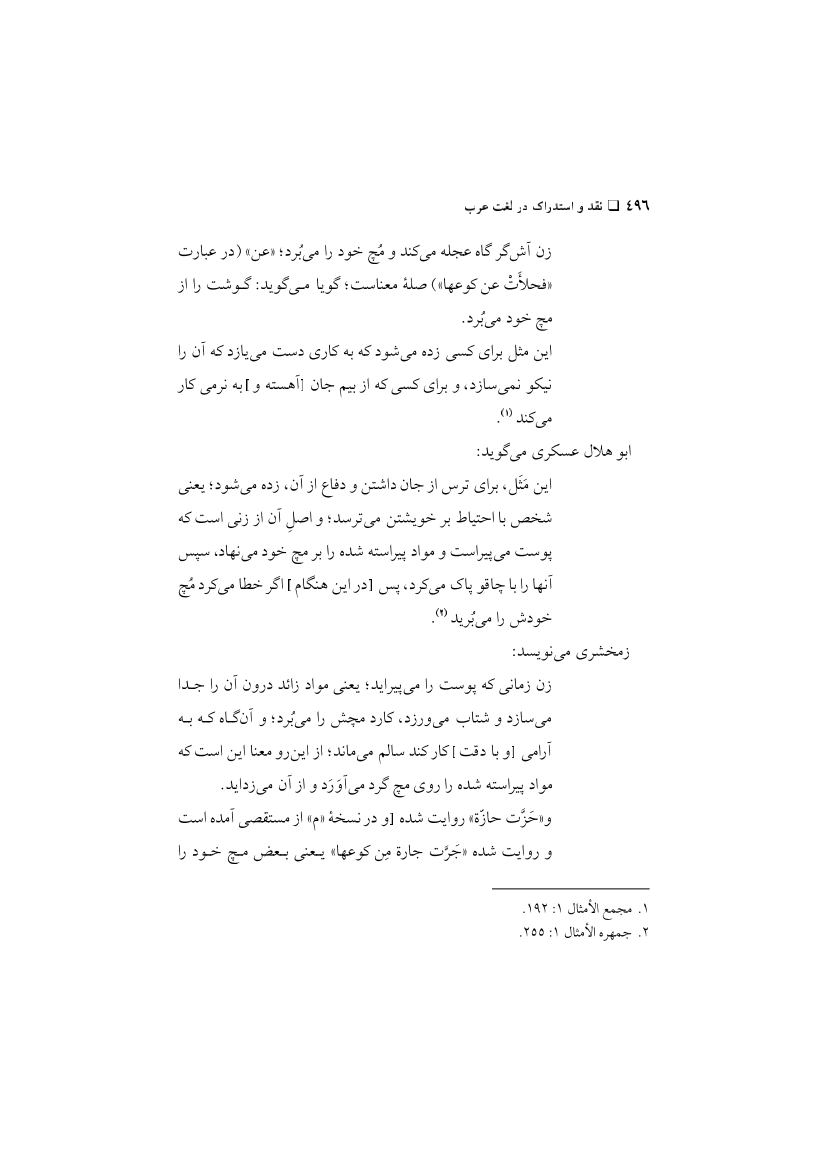 ٤٩٦ ❑ نقد و استدراک در لغت عرب
زن آش‌گر گاه عجله می‌کند و مُچ خود را می‌بُرد؛ «عن» (در عبارت
«فحلأَتْ عن کوعها») صلۀ معناست؛ گویا مـی‌گوید: گـوشت را از
مچ خود می‌بُرد.
این مثل برای کسی زده می‌شود که به کاری دست می‌یازد که آن را
نیکو نمی‌سازد، و برای کسی که از بیم جان [آهسته و ] به نرمی کار
می‌کند (۱).
ابو هلال عسکری می‌گوید:
این مَثَل، برای ترس از جان داشتن و دفاع از آن، زده می‌شود؛ یعنی
شخص با احتیاط بر خویشتن می‌ترسد؛ و اصلِ آن از زنی است که
پوست می‌پیراست و مواد پیراسته شده را بر مچ خود می‌نهاد، سپس
آنها را با چاقو پاک می‌کرد، پس [در این هنگام ] اگر خطا می‌کرد مُچ
خودش را می‌بُرید (۲).
زمخشری می‌نویسد:
زن زمانی که پوست را می‌پیراید؛ یعنی مواد زائد درون آن را جـدا
می‌سازد و شتاب می‌ورزد، کارد مچش را می‌بُرد؛ و آن‌گـاه کـه بـه
آرامی [و با دقت ] کار کند سالم می‌ماند؛ از این‌رو معنا این است که
مواد پیراسته شده را روی مچ گرد می‌آوَرَد و از آن می‌زداید.
و«حَزَّت حازّة» روایت شده [و در نسخۀ «م» از مستقصی آمده است
و روایت شده «جَرَّت جارة مِن کوعها» یـعنی بـعض مـچ خـود را
۱. مجمع الأمثال ۱: ۱۹۲.
۲. جمهره الأمثال ۱: ۲٥٥.